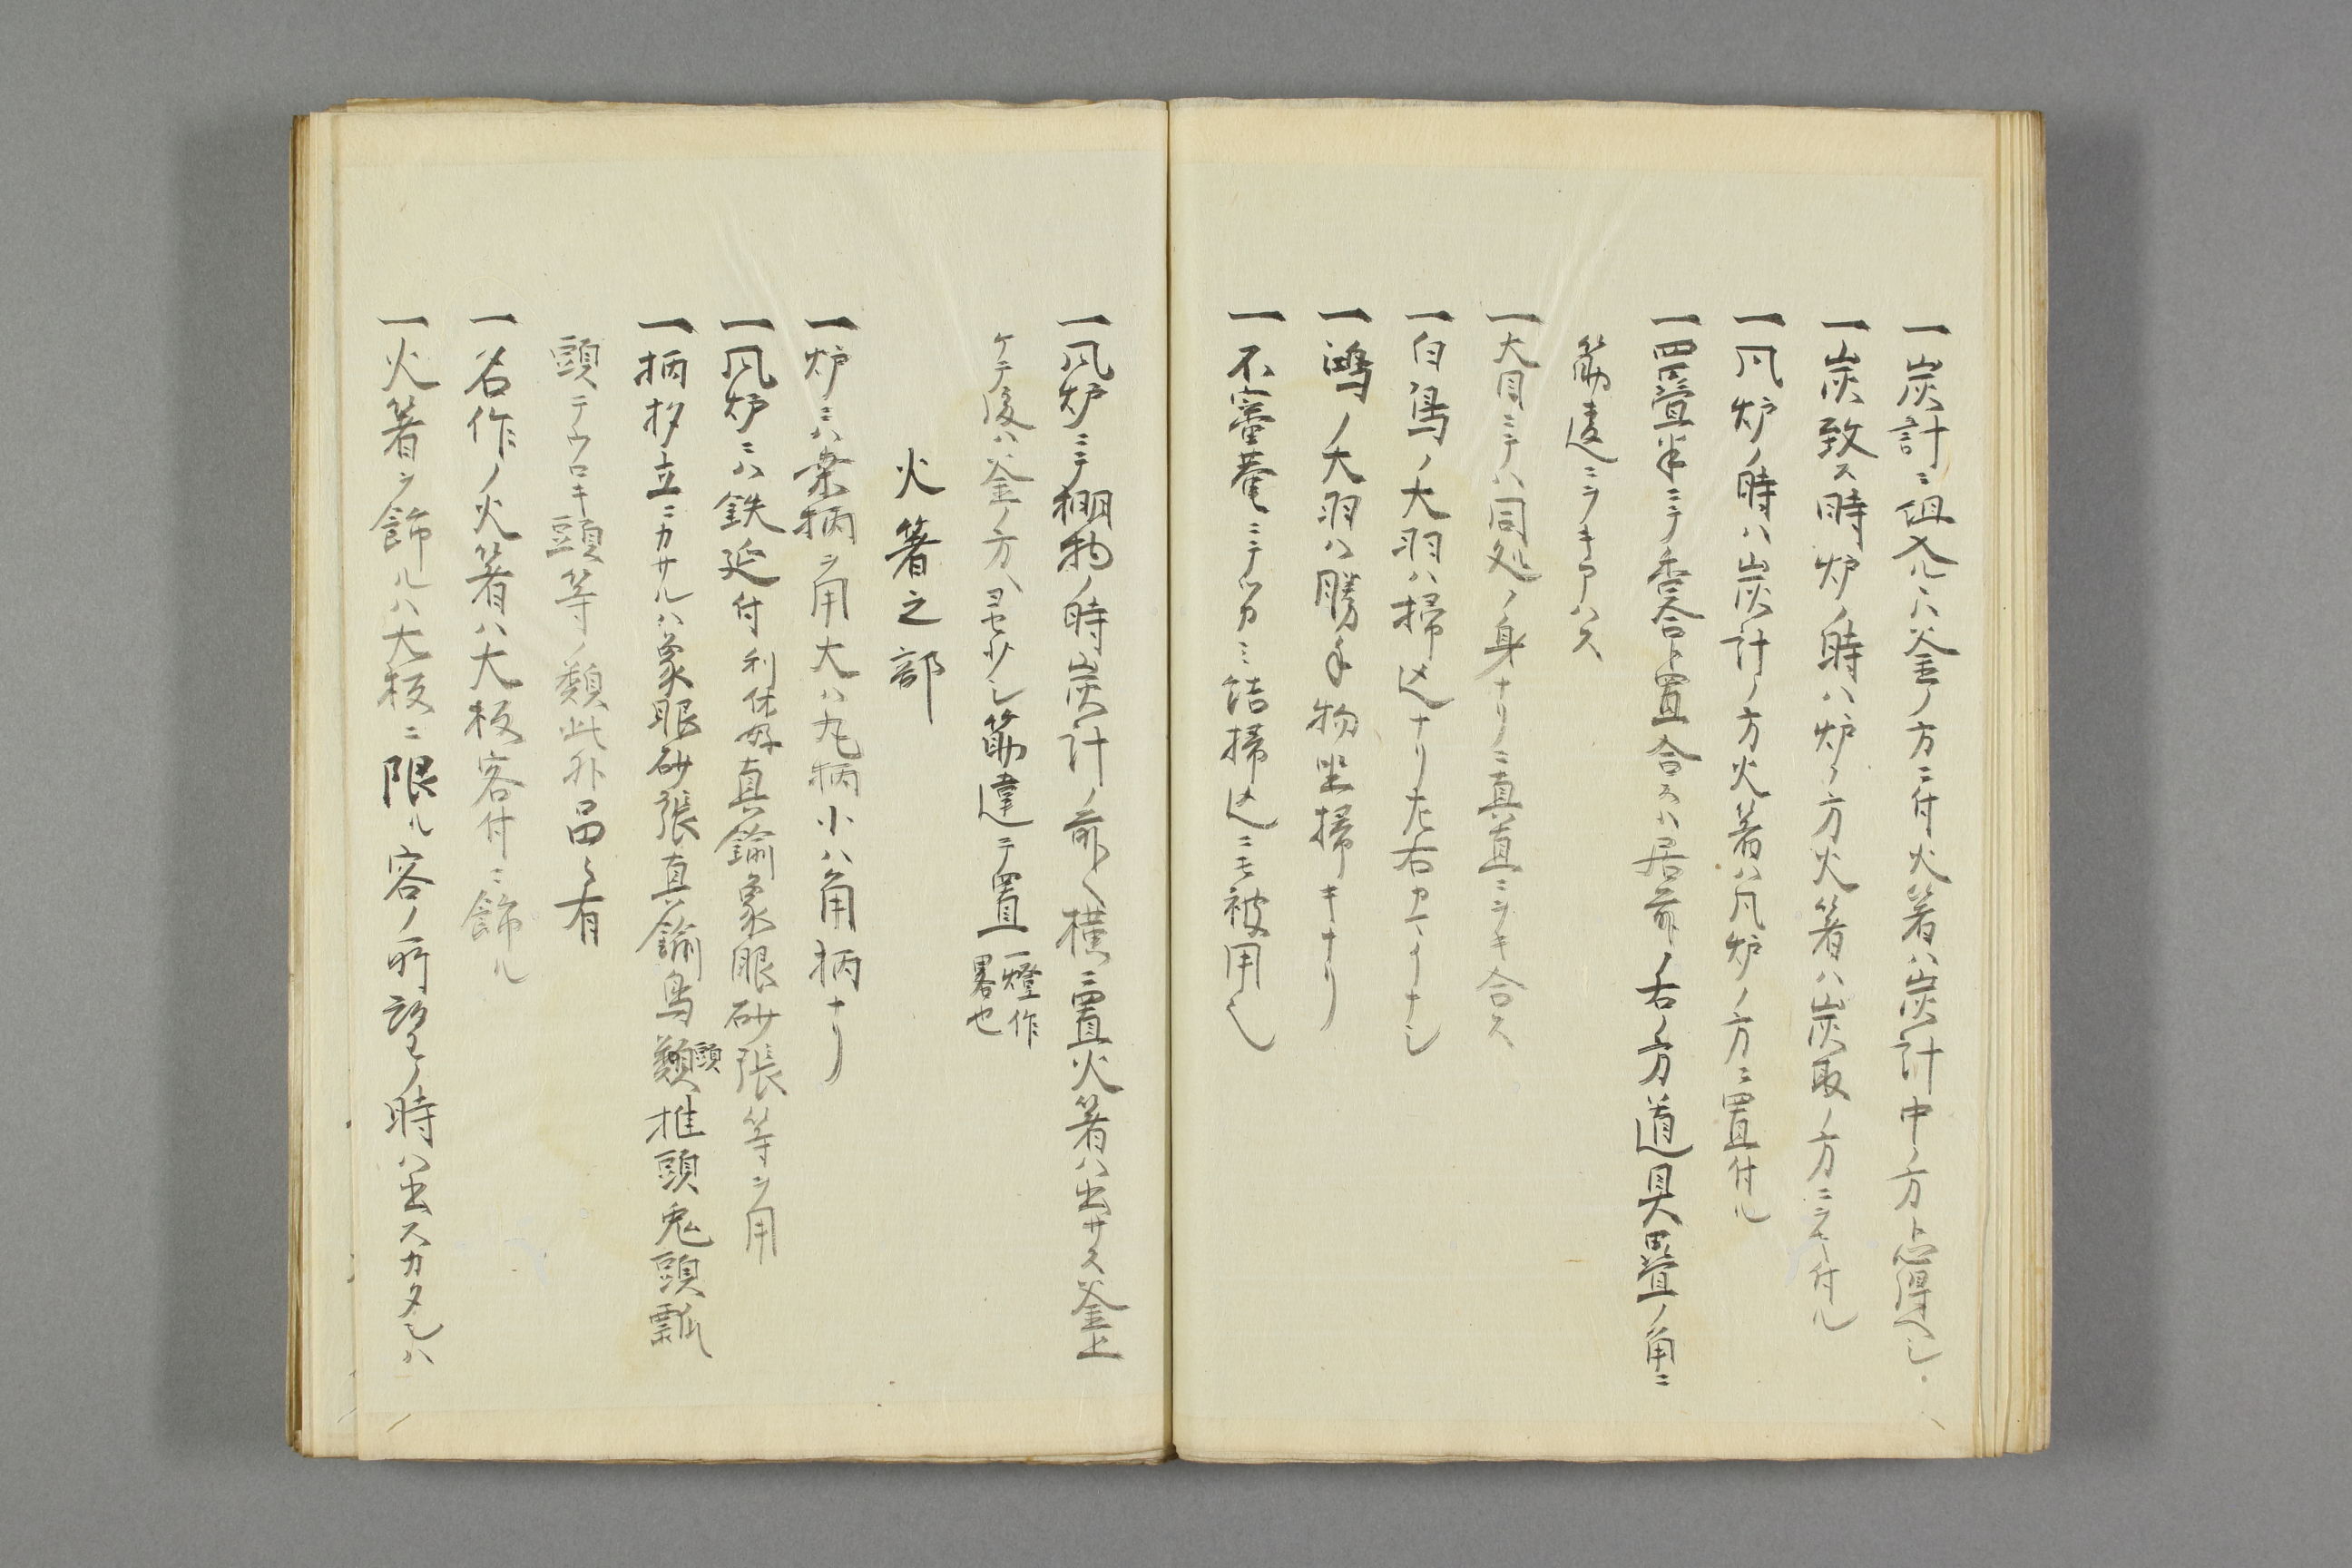 一炭計ニ組入ルハ釜ノ方ニ付火箸ハ炭計中ノ方ト心得ヘシ
一炭致ス時炉ノ時ハ炉ノ方火箸ハ炭取ノ方ニ付ル
一風炉ノ時ハ炭計ノ方火箸ハ風炉ノ方ニ置付ル
一四畳半ニテ香合ト置合ルハ居前ノ右ノ方道具畳ノ角ニ
筋違ニツキアハス
一大目ニテハ同処ノ身ナリニ真直ニツキ合ス
一白鳥ノ大羽ハ掃込ナリ左右カマイナシ
一鴻ノ大羽ハ勝手物坐掃キナリ
一不審菴ニテツカミ結掃込ニモ被用シ
一風炉ニテ棚物ノ時炭計ノ前ヘ横ニ置火箸ハ出サス釜上
ケテ後ハ釜ノ方ヘヨセ少シ筋違ニテ置 一燈作畧也
火箸之部
一炉ニハ桑柄ヲ用大ハ丸柄小ハ角柄ナリ
一風炉ニハ鉄延付利休好真鍮象眼砂張等ヲ用
一柄杓立ニカサルハ象眼砂張真鍮鳥頭類椎頭兎頭瓢
頭テウロキ頭等ノ類此外品々有
一名作ノ火箸ハ大板客付ニ飾ル
一火箸ヲ飾ルハ大板ニ限ル客ノ所望ノ時ハ出スカタシハ